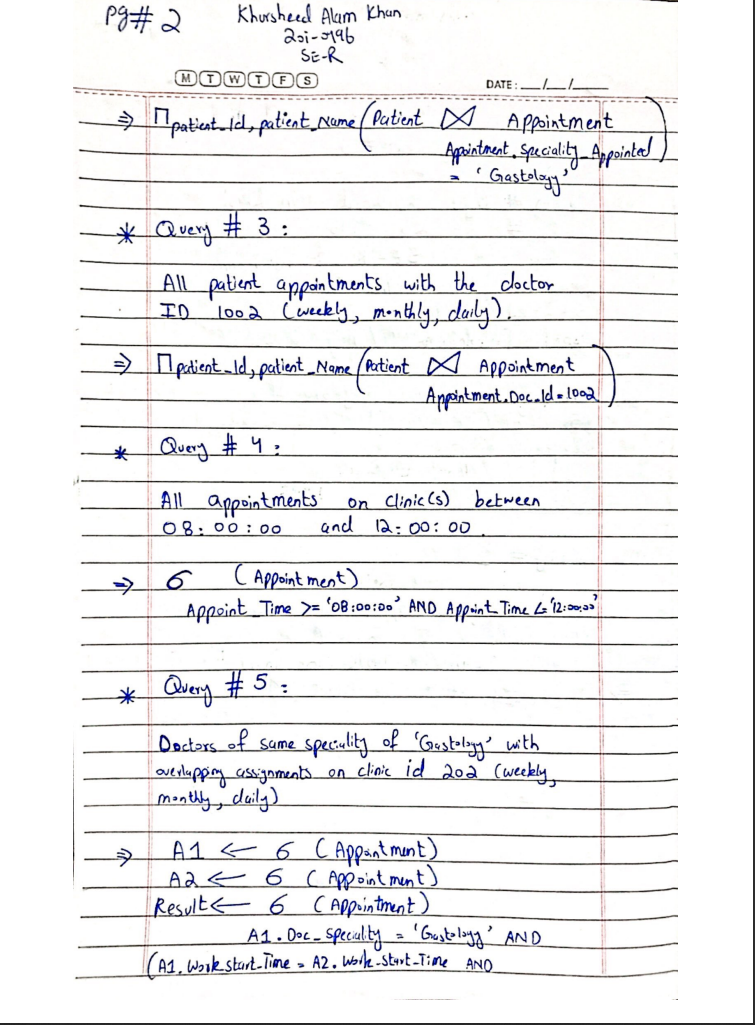 Pg# 2 Khursheed Alam Khan
20i-0196
SE-R
M T W T F S DATE: __/__/__
⇒ Π patient_Id, patient_Name (Patient ⋈ Appointment
Appointment.Speciality_Appointed)
= 'Gastology'
* Query # 3 :
All patient appointments with the doctor
ID 1002 (weekly, monthly, daily).
⇒ Π patient_Id, patient_Name (Patient ⋈ Appointment
Appointment.Doc_Id = 1002)
* Query # 4 :
All appointments on clinic(s) between
08:00:00 and 12:00:00
⇒ б (Appointment)
Appoint_Time >= '08:00:00' AND Appoint_Time <= '12:00:00'
* Query # 5 :
Doctors of same speciality of 'Gastology' with
overlapping assignments on clinic id 202 (weekly,
monthly, daily)
⇒ A1 ← б (Appointment)
A2 ← б (Appointment)
Result ← б (Appointment)
A1.Doc_Speciality = 'Gastology' AND
(A1.Work_start_Time = A2.Work_start_Time AND